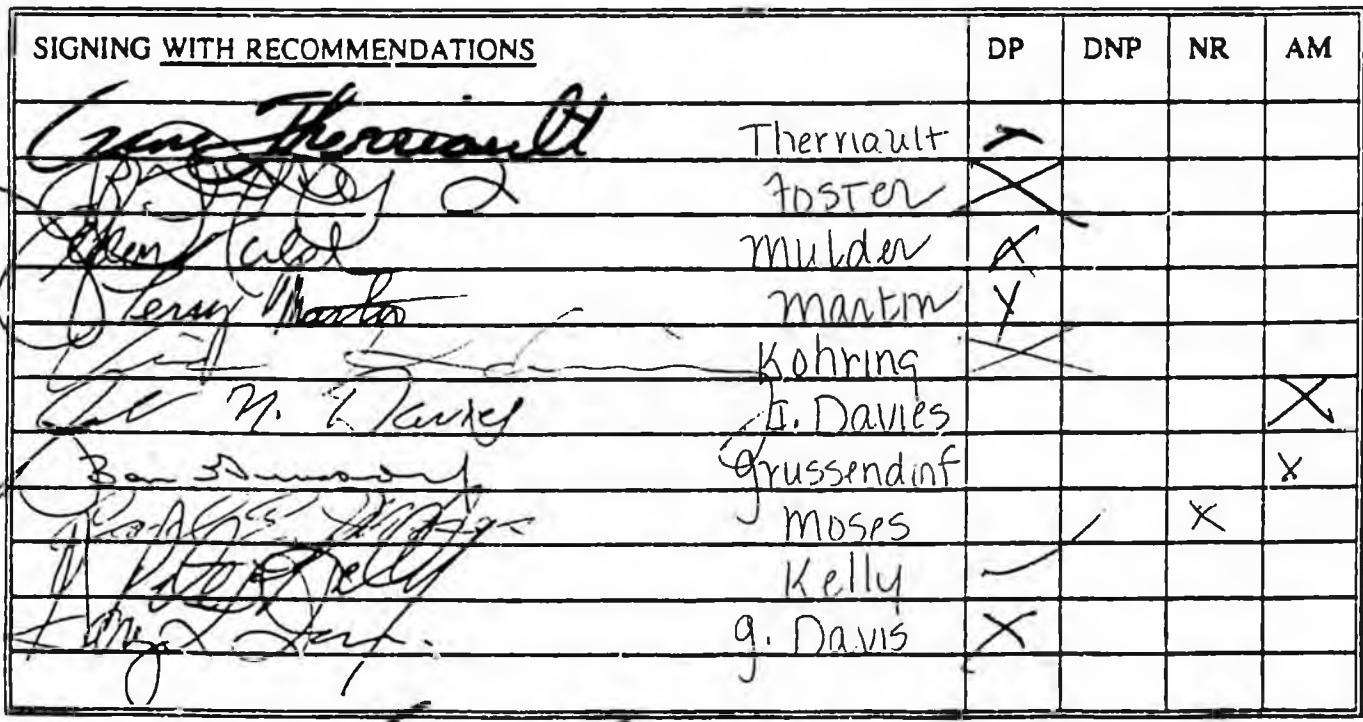 SIGNING WITH RECOMMENDATIONS DP DNP NR AM
Gene Therriault Therriault
Foster
Mulder
Terry Martin Martin
Kohring X
N. Davies J. Davies X
Grussendorf X
Moses X
Pete Kelly Kelly
G. Davis X